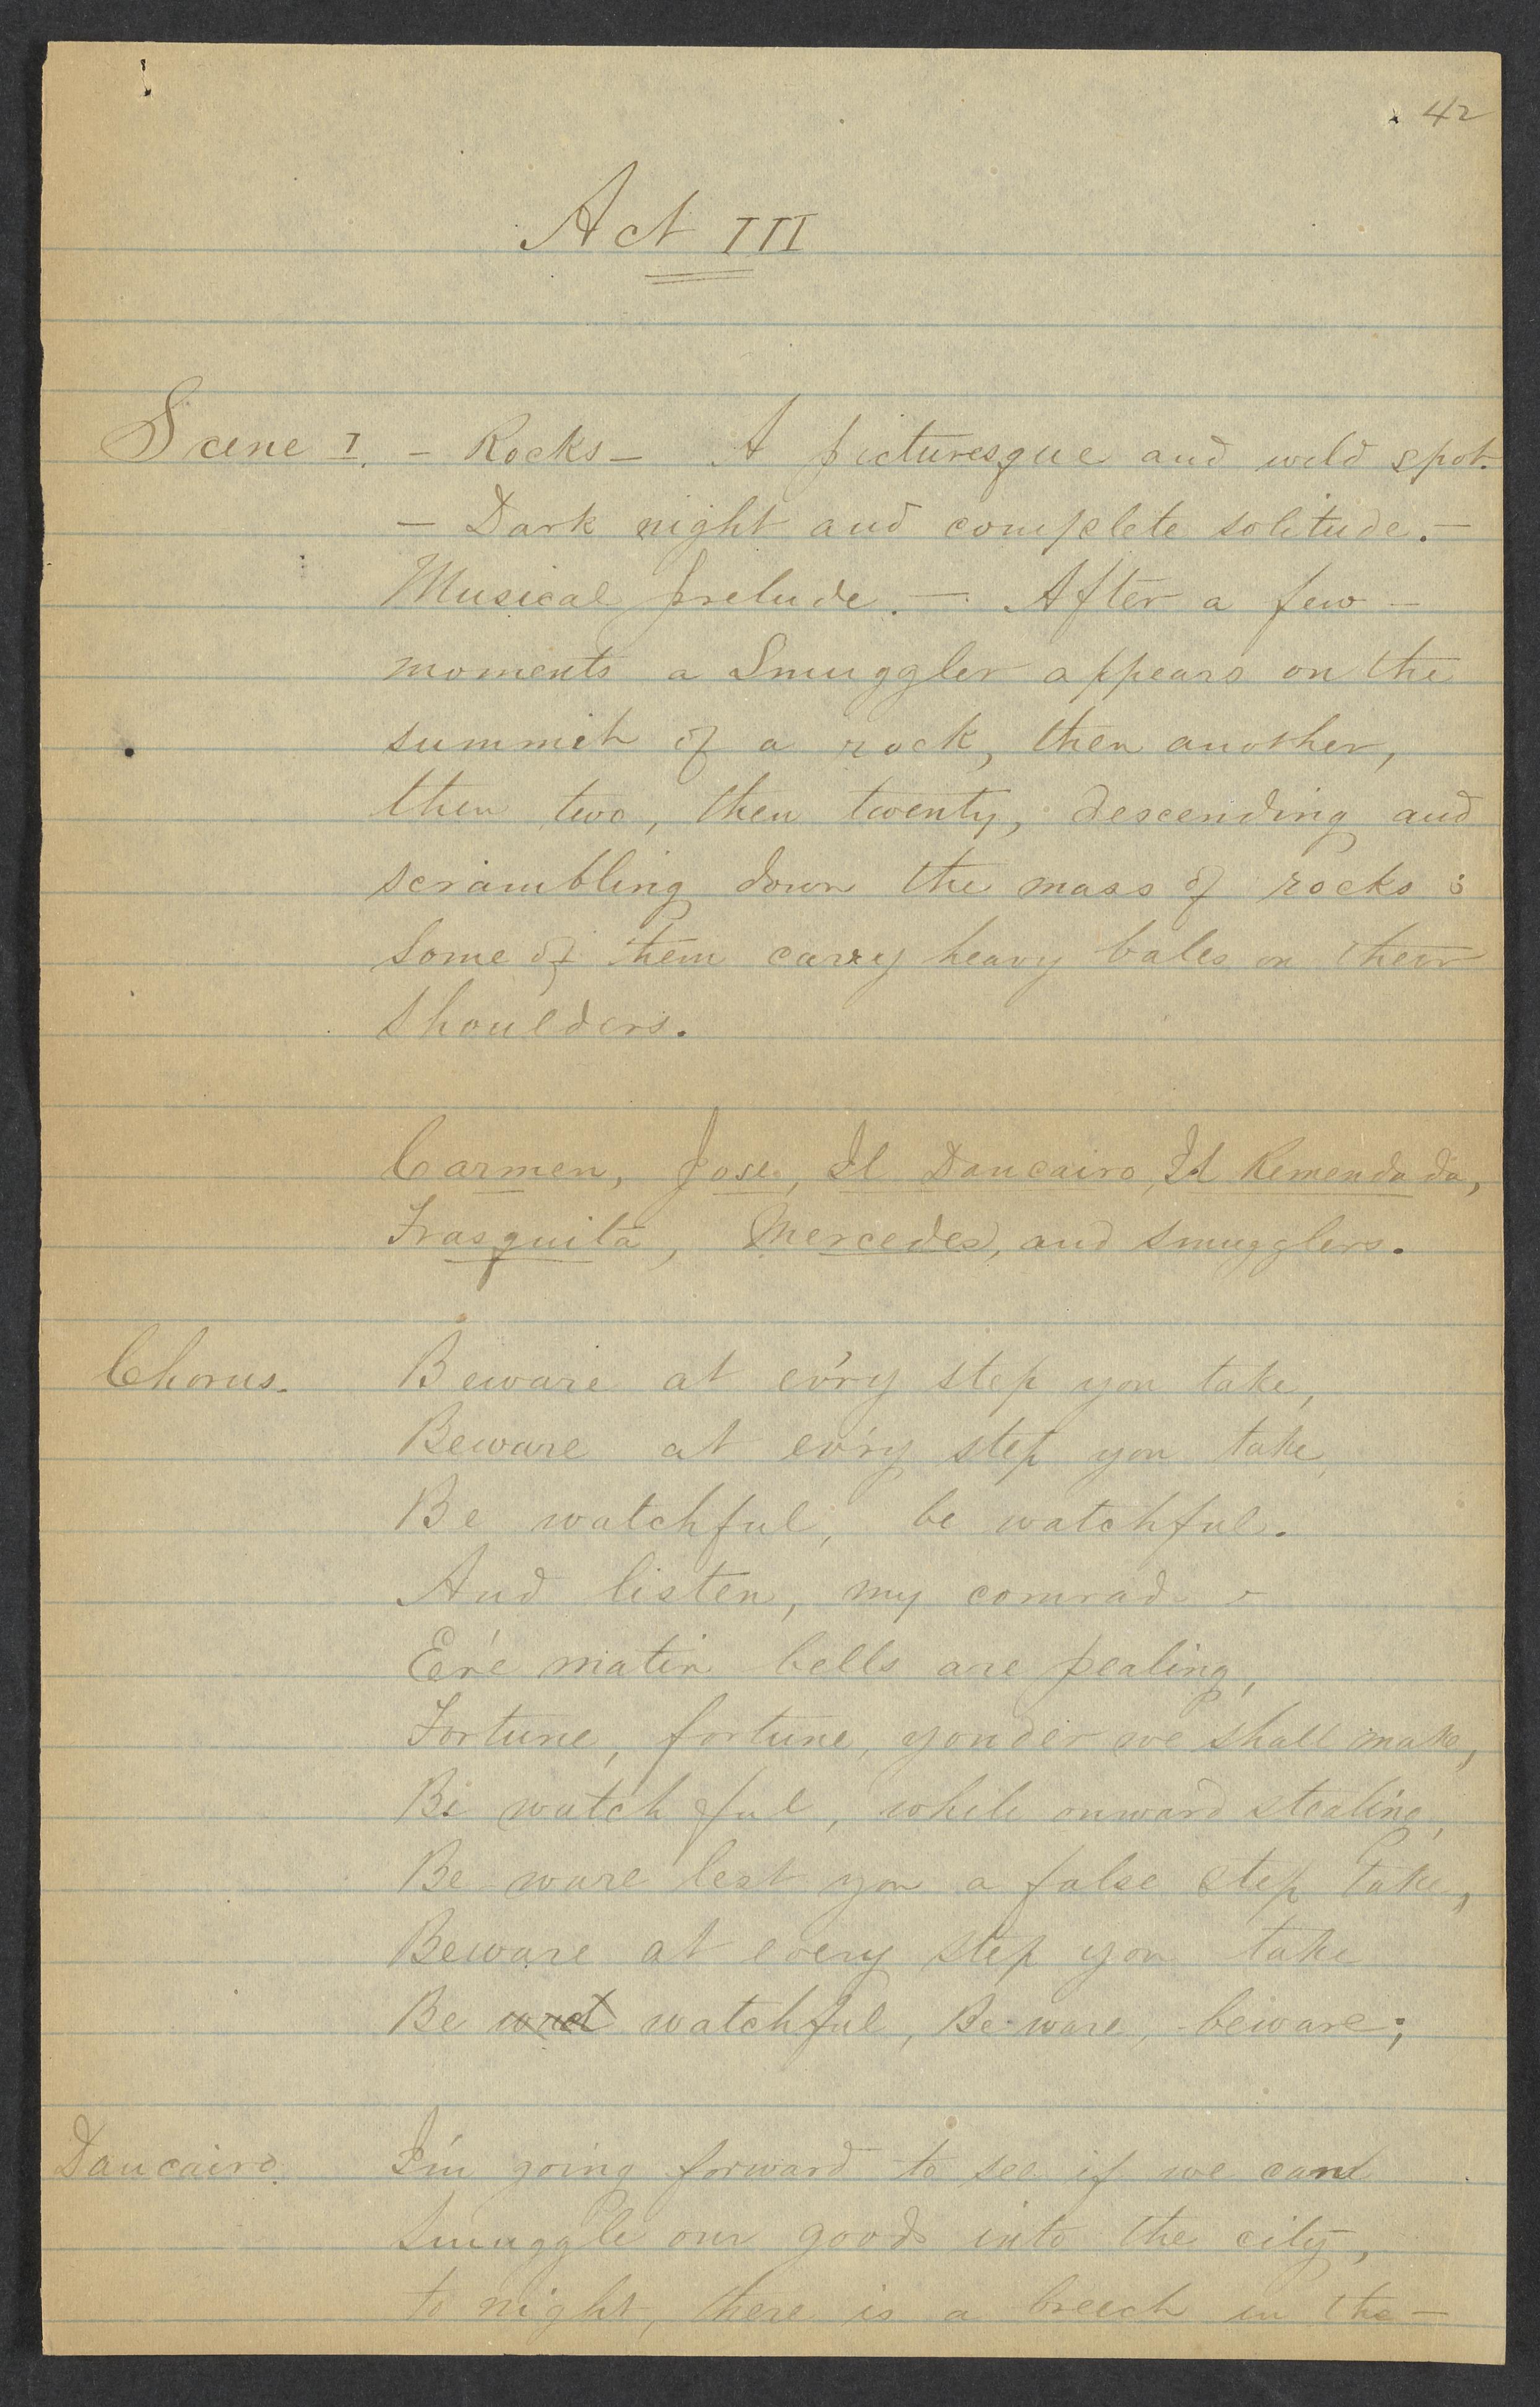 42
Act III
Scene I. - Rocks - A picturesque and wild spot.
- Dark night and complete solitude. -
Musical prelude. - After a few -
moments a Smuggler appears on the
summit of a rock, then another,
then two, then twenty, descending and
scrambling down the mass of rocks ;
some of them carry heavy bales on their
shoulders.
Carmen, Jose, Il Dancairo, Il Remendado,
Frasquita, Mercedes, and smugglers.
Chorus. Beware at ev'ry step you take,
Beware at ev'ry step you take,
Be watchful, be watchful.
And listen, my comrad
E're matin bells are pealing,
Fortune, fortune, yonder we shall make,
Be watchful, while onward stealing,
Be ware lest you a false step take,
Beware at every step you take
Be watchful, Be ware, beware;
Dancairo. I'm going forward to see if we can
smuggle our goods into the city,
to night, there is a breech in the -